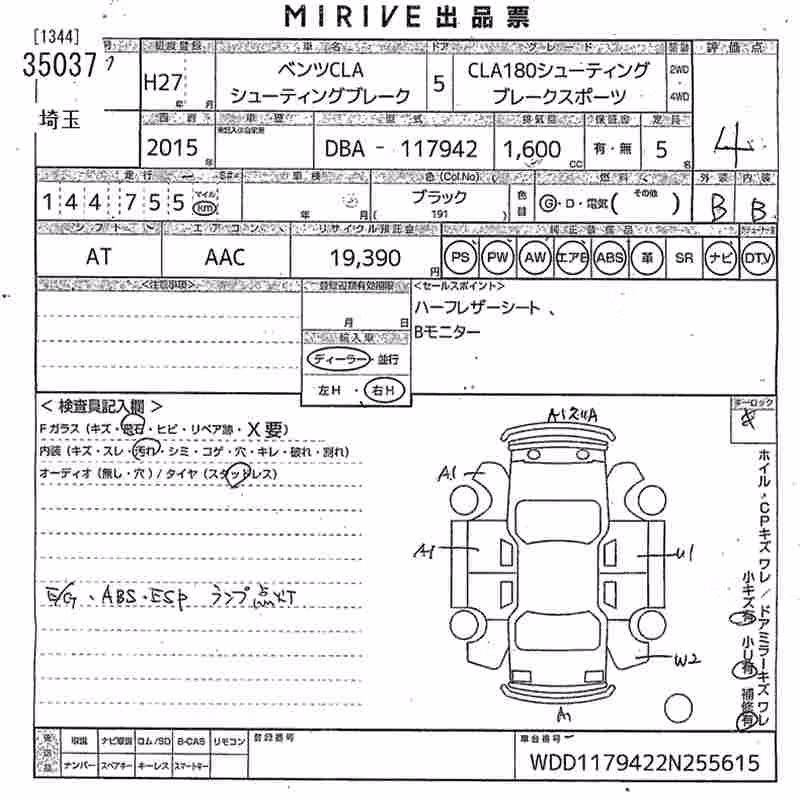 MIRIVE出品票
[1344]
35037
埼玉
初度登録 車名 ドア グレード 駆動 評価点
H27 年 月
ベンツCLA
シューティングブレーク
5
CLA180シューティング
ブレークスポーツ
2WD
4WD
4
車歴 型式 排気量 保証書 定員
2015年
DBA - 117942
1,600 cc
有・無
5名
走行 車検 色(Col.No) 燃料 外装 内装
144755 マイル km
年 月
ブラック
(191)
色替
G・D・電気( その他 )
B B
シフト エアコン リサイクル預託金 純正装備品
AT AAC 19,390円 PS PW AW エアB ABS 革 SR ナビ DTV
<注意事項>
月 日
輸入車
ディーラー・並行
左H・右H
<セールスポイント>
ハーフレザーシート、
Bモニター
<検査員記入欄>
Fガラス(キズ・飛石・ヒビ・リペア跡・X要)
内装(キズ・スレ・汚れ・シミ・コゲ・穴・キレ・破れ・割れ)
オーディオ(無し・穴)/タイヤ(スタッドレス)
E/G、ABS・ESP ランプ点灯
A1
A1
U1
W2
A1
キーロック
ホイル・CPキズ ワレ/ドアミラーキズ ワレ
小キズ有 小U有 補修有
取説 ナビ取説 ロム/SD B-CAS リモコン
ナンバー スペアキー キーレス スマートキー
登録番号
車台番号
WDD1179422N255615